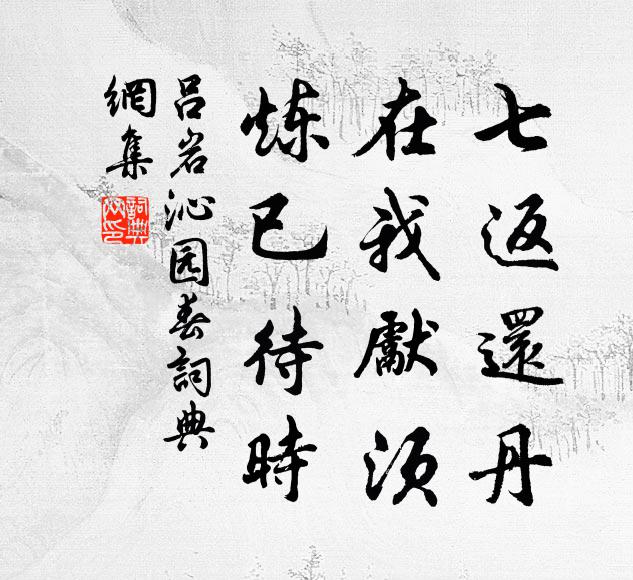 七返還丹
在我獻須
炼已待時
吕岩沁园春詞典
網集
詞典
网印